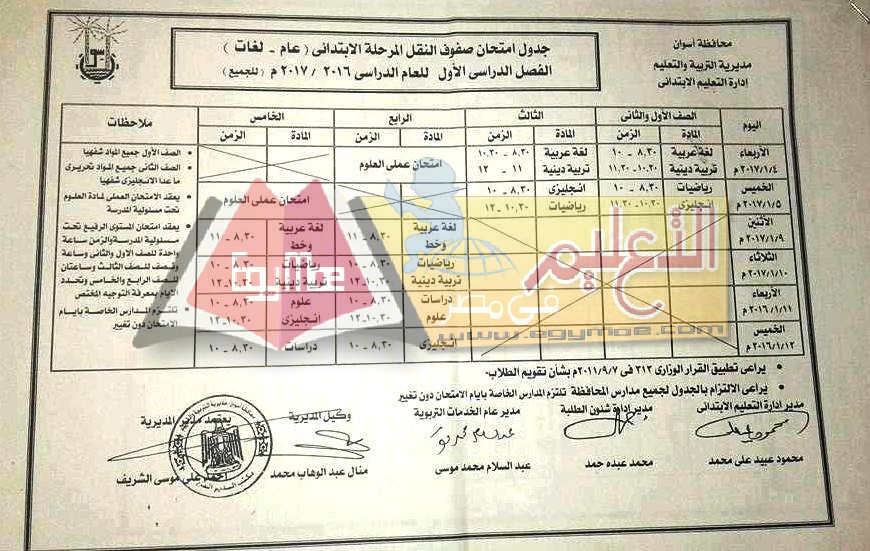 محافظة أسوان
مديرية التربية والتعليم
إدارة التعليم الابتدائى
جدول امتحان صفوف النقل المرحلة الابتدائى ( عام - لغات )
الفصل الدراسى الأول للعام الدراسى ٢٠١٦ / ٢٠١٧ م ( للجميع )
اليوم
الصف الأول والثانى
الثالث
الرابع
الخامس
ملاحظات
المادة الزمن المادة الزمن المادة الزمن المادة الزمن
الأربعاء ٢٠١٧/١/٤م
لغة عربية ٨,٣٠ - ١٠ لغة عربية ٨,٣٠ - ١٠,٣٠
تربية دينية ١٠,٣٠ - ١١,٣٠ تربية دينية ١١ - ١٢
امتحان عملى العلوم
الخميس ٢٠١٧/١/٥م
رياضيات ٨,٣٠ - ١٠ انجليزى ٨,٣٠ - ١٠
انجليزى ١٠,٣٠ - ١١,٣٠ رياضيات ١٠,٣٠ - ١٢
امتحان عملى العلوم
الأثنين ٢٠١٧/١/٩م
لغة عربية وخط ٨,٣٠ - ١١ لغة عربية وخط ٨,٣٠ - ١١
الثلاثاء ٢٠١٧/١/١٠م
رياضيات ٨,٣٠ - ١٠ رياضيات ٨,٣٠ - ١٠
تربية دينية ١٠,٣٠ - ١٢ تربية دينية ١٠,٣٠ - ١٢
الأربعاء ٢٠١٦/١/١١م
دراسات ٨,٣٠ - ١٠ علوم ٨,٣٠ - ١٠
علوم ١٠,٣٠ - ١٢ انجليزى ١٠,٣٠ - ١٢
الخميس ٢٠١٦/١/١٢م
انجليزى ٨,٣٠ - ١٠ دراسات ٨,٣٠ - ١٠
الصف الأول جميع المواد شفهيا
الصف الثانى جميع المواد تحريرى
ما عدا الانجليزى شفهيا
يعقد الامتحان العملى لمادة العلوم
تحت مسئولية المدرسة
يعقد امتحان المستوى الرفيع تحت
مسئولية المدرسة والزمن ساعة
واحدة للصف الأول والثانى وساعة
ونصف للصف الثالث وساعتان
للصف الرابع والخامس وتحدد
الأيام بمعرفة التوجيه المختص
تلتزم المدارس الخاصة بأيام
الامتحان دون تغيير
التعليم
فى مصر
Egymoe
www.egymoe.com
يراعى تطبيق القرار الوزارى ٣١٣ فى ٢٠١١/٩/٧م بشأن تقويم الطلاب.
يراعى الالتزام بالجدول لجميع مدارس المحافظة تلتزم المدارس الخاصة بأيام الامتحان دون تغيير
مدير إدارة التعليم الابتدائى
مدير إدارة شئون الطلبة
مدير عام الخدمات التربوية
وكيل المديرية
يعتمد مدير المديرية
محمود عبيد على محمد
محمد عبده حمد
عبد السلام محمد موسى
منال عبد الوهاب محمد
أحمد على موسى الشريف